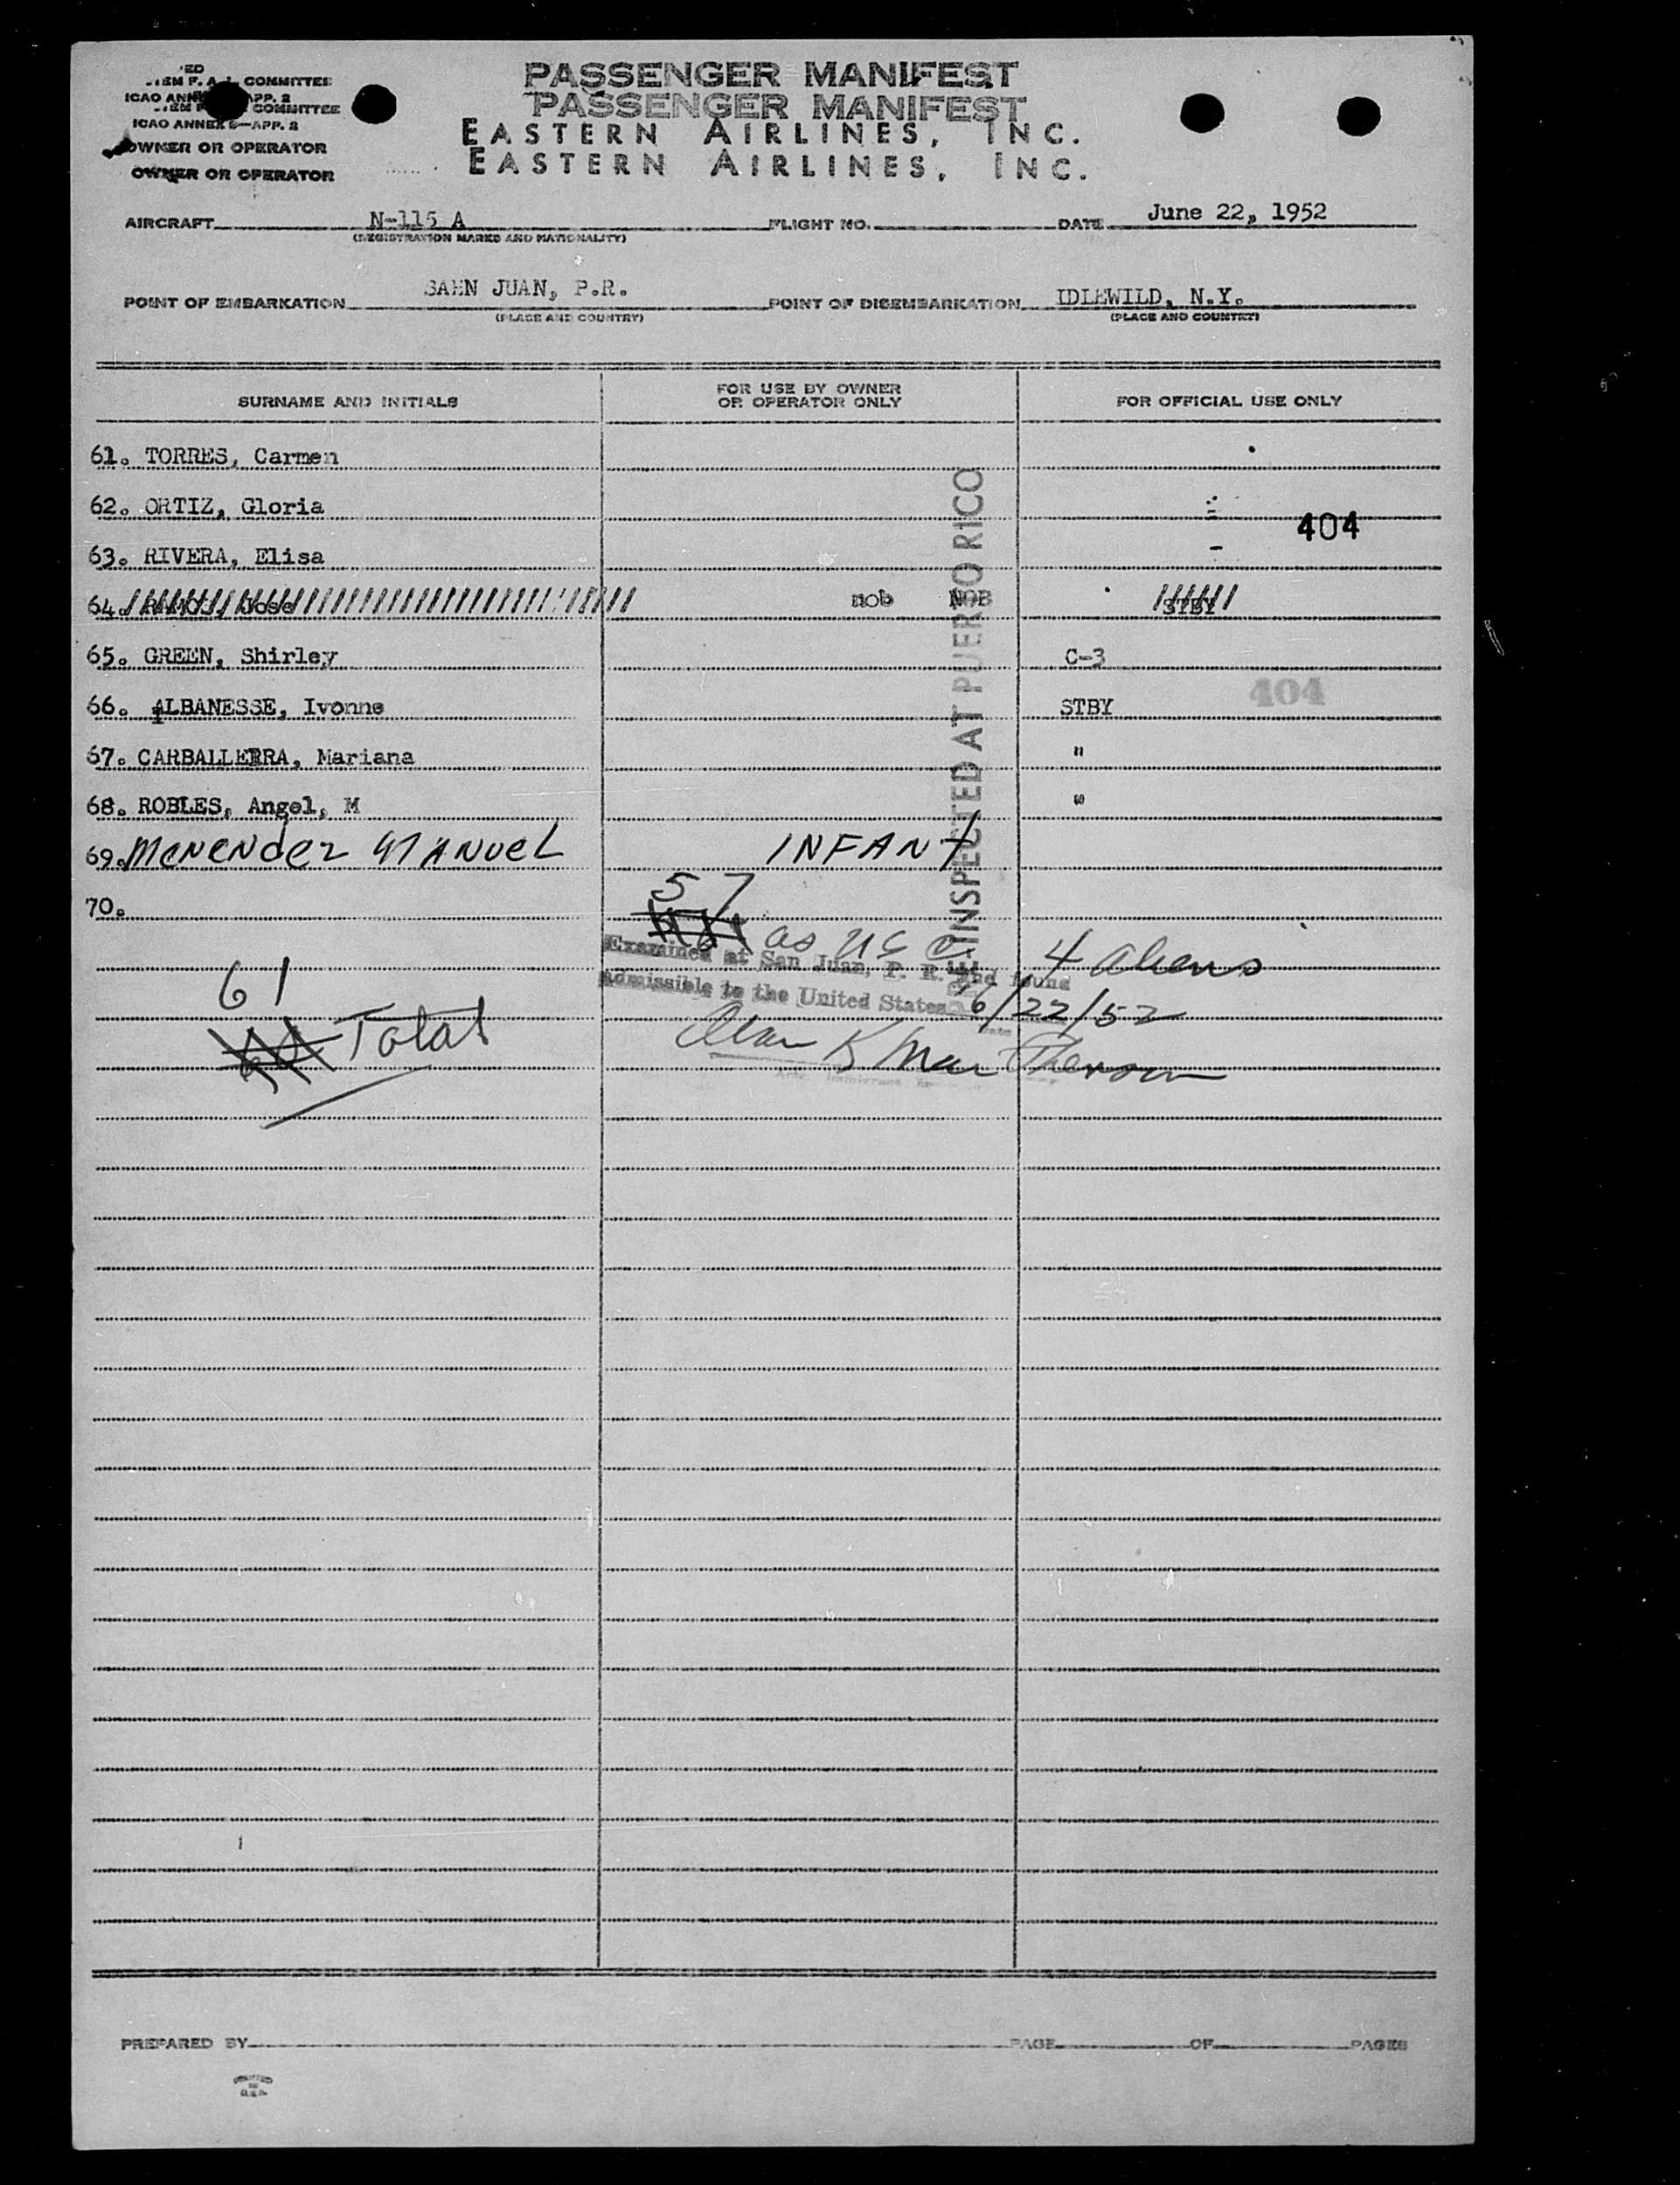 PASSENGER MANIFEST
PASSENGER MANIFEST
EASTERN AIRLINES, INC.
EASTERN AIRLINES, INC.
COMMITTEE
ICAO ANN APP. 2
COMMITTEE
ICAO ANNEX 9—APP. 2
OWNER OR OPERATOR
OWNER OR OPERATOR
AIRCRAFT N-115 A FLIGHT NO. DATE June 22, 1952
(REGISTRATION MARKS AND NATIONALITY)
POINT OF EMBARKATION SAHN JUAN, P.R. POINT OF DISEMBARKATION IDLEWILD, N.Y.
(PLACE AND COUNTRY) (PLACE AND COUNTRY)
SURNAME AND INITIALS FOR USE BY OWNER OR OPERATOR ONLY FOR OFFICIAL USE ONLY
61. TORRES, Carmen
62. ORTIZ, Gloria
404
63. RIVERA, Elisa
64. RAMOS, Jose nob NOB STBY
65. GREEN, Shirley C-3
66. ALBANESSE, Ivonne STBY 404
67. CARBALLERRA, Mariana "
68. ROBLES, Angel, M "
69. MENENdez MANUEL INFANT
70.
57
as US C 4 aliens
Examined at San Juan, P. R. and found
admissible to the United States 6/22/52
Date
61
Total
INSPECTED AT PUERTO RICO
PREPARED BY PAGE OF PAGES
PRINTED
IN
U.S.A.